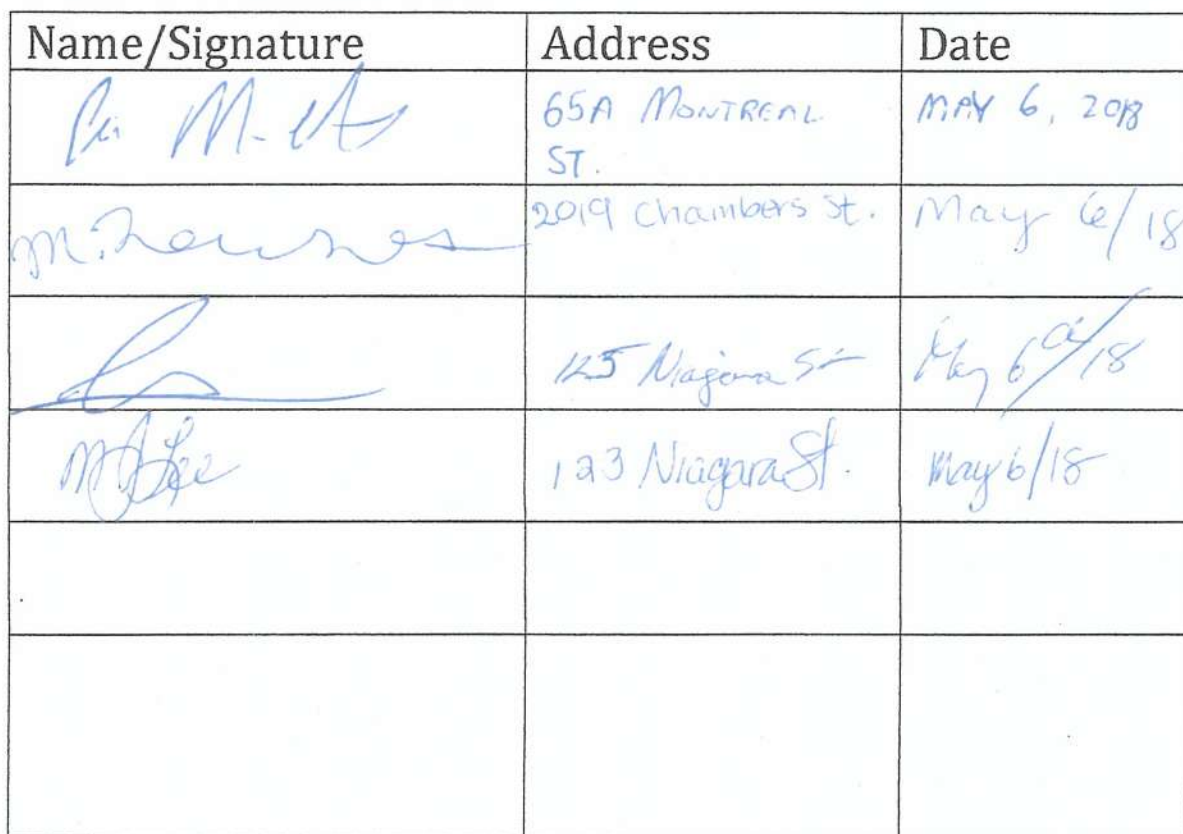 Name/Signature Address Date
65A MONTREAL ST. MAY 6, 2018
2019 Chambers St. May 6/18
125 Niagara St May 6/18
M Lee 123 Niagara St. May 6/18